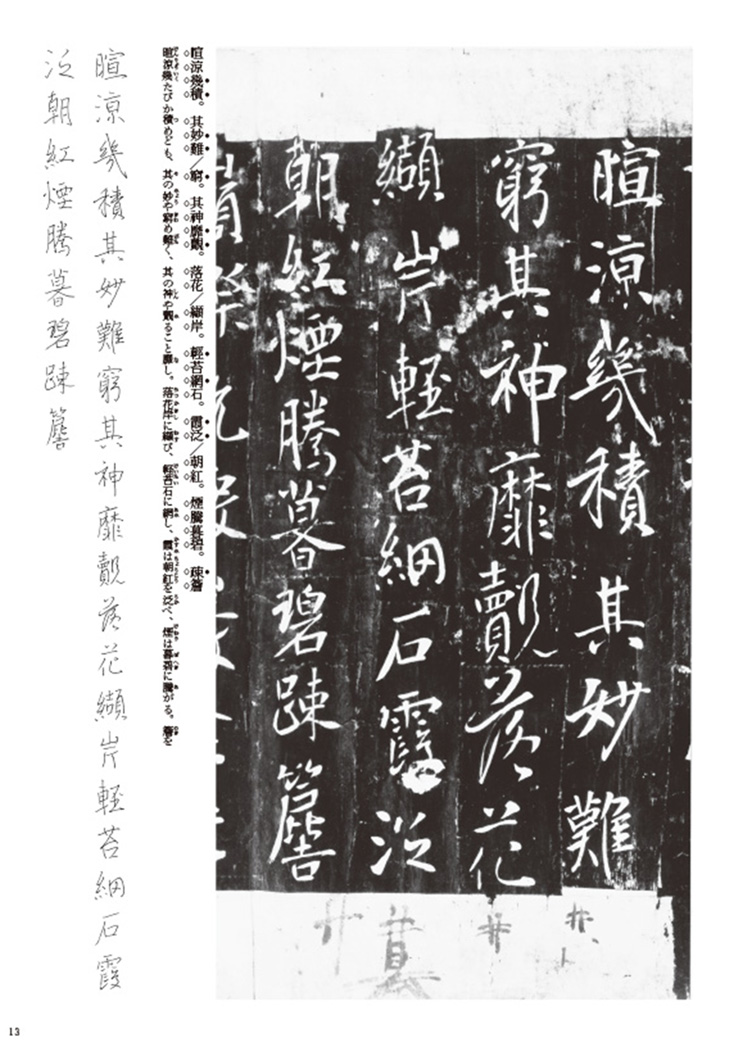 暄涼幾積其妙難
窮其神靡覿落花
纈岸輕苔網石霞泛
朝紅煙騰暮碧疎簷
暄涼幾積。其妙難／窮。其神靡覿。落花／纈岸。輕苔網石。霞泛／朝紅。煙騰暮碧。疎簷
暄涼幾たびか積めども、其の妙や窮め難く、其の神や覿ること靡し。落花岸に纈び、輕苔石に網し、霞は朝紅を泛べ、煙は暮碧に騰がる。簷を
暄涼幾積其妙難窮其神靡覿落花纈岸輕苔網石霞
泛朝紅煙騰暮碧疎簷
13